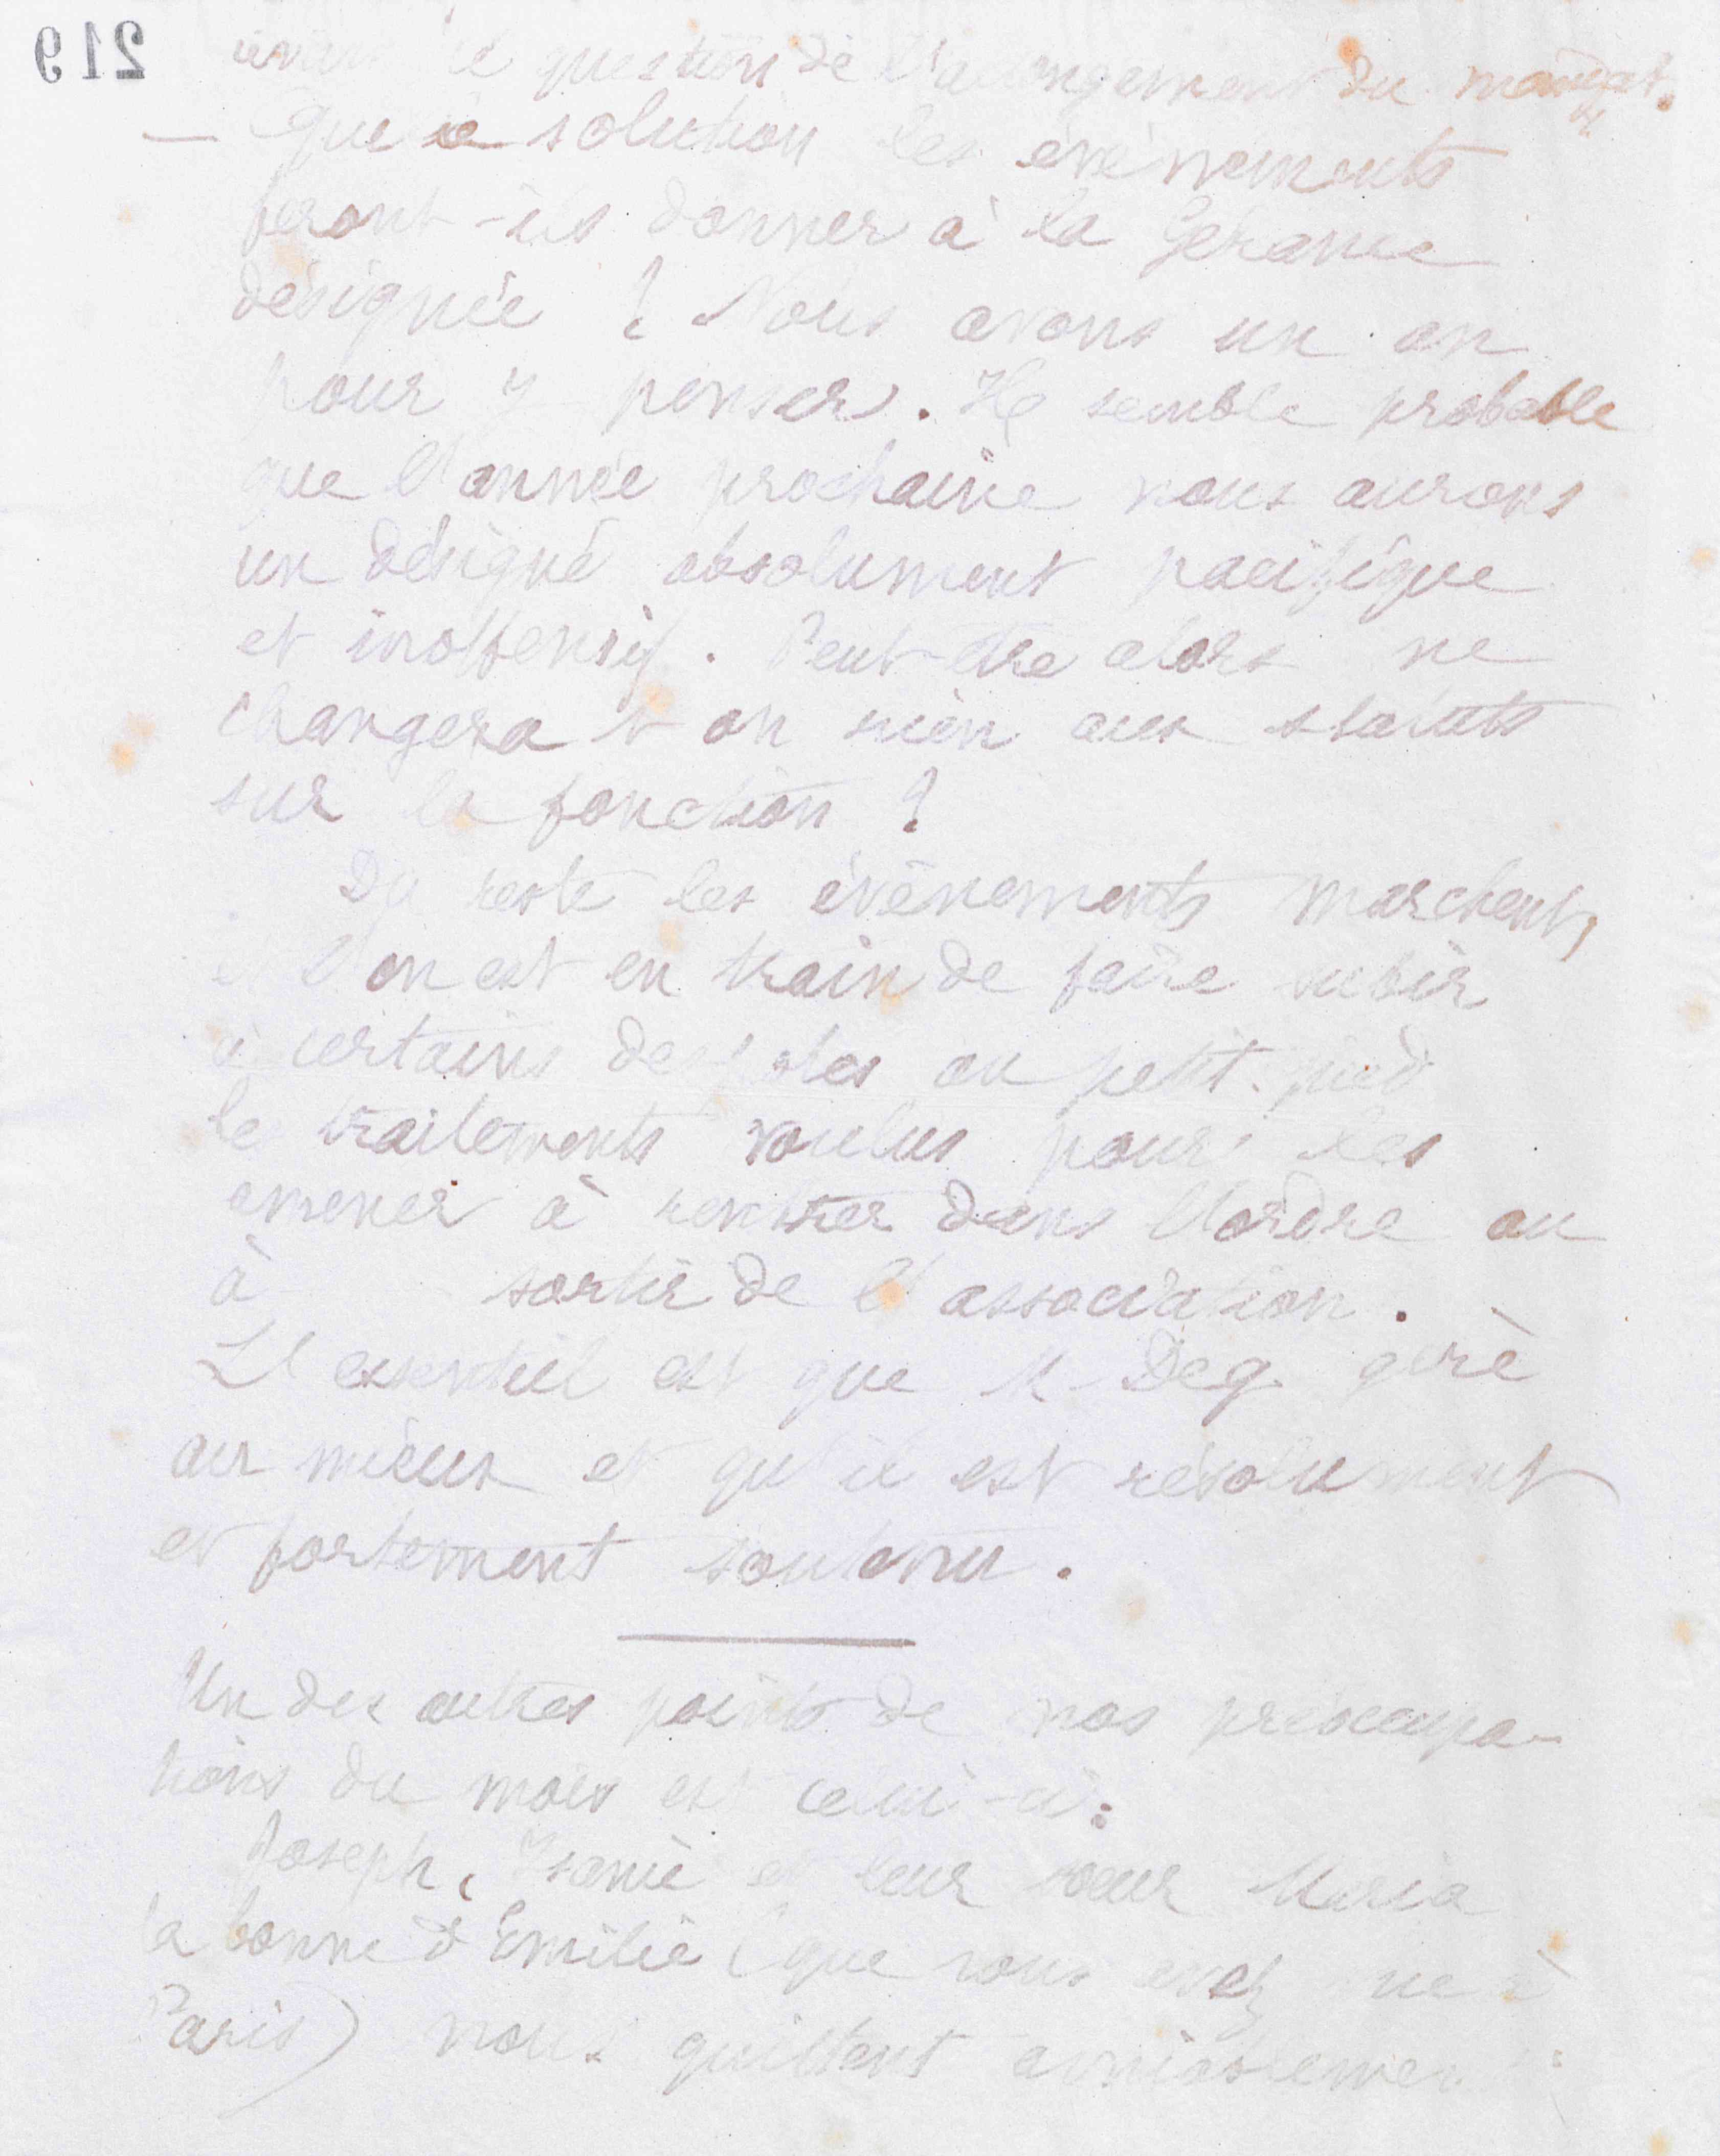 219
question de l'allongement du mandat.
— Quelle solution les évènements
feront-ils donner à la Gérance
désignée ? Nous avons un an
pour y penser. Il semble probable
que l'année prochaine nous aurons
un désigné absolument pacifique
et inoffensif. Peut-être alors ne
changera t on rien aux statuts
sur la fonction ?
Du reste les évènements marchent,
et l'on est en train de faire subir
à certains despotes au petit pied
les traitements voulus pour les
amener à rentrer dans l'ordre ou
à sortir de l'association.
L'essentiel est que M. Deq. gère
au mieux et qu'il est résolument
et fortement soutenu.
Un des autres points de nos préoccupa-
tions du mois est celui-ci :
Joseph, Isanie et leur sœur Maria
la bonne d'Emilie (que vous avez vue à
Paris) nous quittent